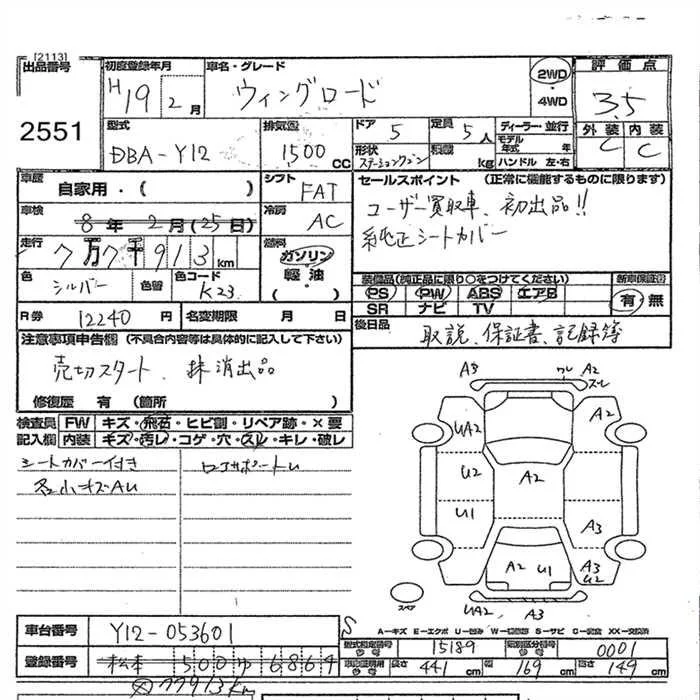 [2113]
出品番号
2551
初度登録年月
H19 2月
車名・グレード
ウィングロード
2WD
・
4WD
評価点
3.5
外装 内装
C C
型式
DBA-Y12
排気量
1500
CC
ドア
5
定員
5人
ディーラー・並行
モデル年式 年
形状
ステーションワゴン
積載
kg
ハンドル 左・右
車歴
自家用・( )
シフト
FAT
車検
8年 2月(25日)
冷房
AC
走行
7万7千913km
燃料
ガソリン
軽・油
( )
色
シルバー
色替
色コード
K23
R券
12240円
名変期限 月 日
セールスポイント (正常に機能するものに限ります)
ユーザー買取車、初出品!!
純正シートカバー
装備品(純正品に限り○をつけてください)
PS PW ABS エアB
SR ナビ TV
新車保証書
有・無
後日品
取説、保証書、記録簿
注意事項申告欄 (不具合内容等は具体的に記入して下さい)
売切スタート、抹消出品
修復歴 有 (箇所 )
検査員
記入欄
FW キズ・飛石・ヒビ割・リペア跡・×要
内装 キズ・汚レ・コゲ・穴・スレ・キレ・破レ
シートカバー付き
各小キズAU
A3
A2
スレ
UA2
A2
U2
A2
U1
A3
A2 U1
A3
U2
UA2
A3
スペア
A-キズ E-エクボ U-凹み W-補修跡 S-サビ C-腐食 XX-交換済
車台番号
Y12-053601
S
型式指定番号
15189
類別区分番号
0001
登録番号
松本 500 ゆ 6864
長さ 441cm
幅 169cm
高さ 149cm
77913km